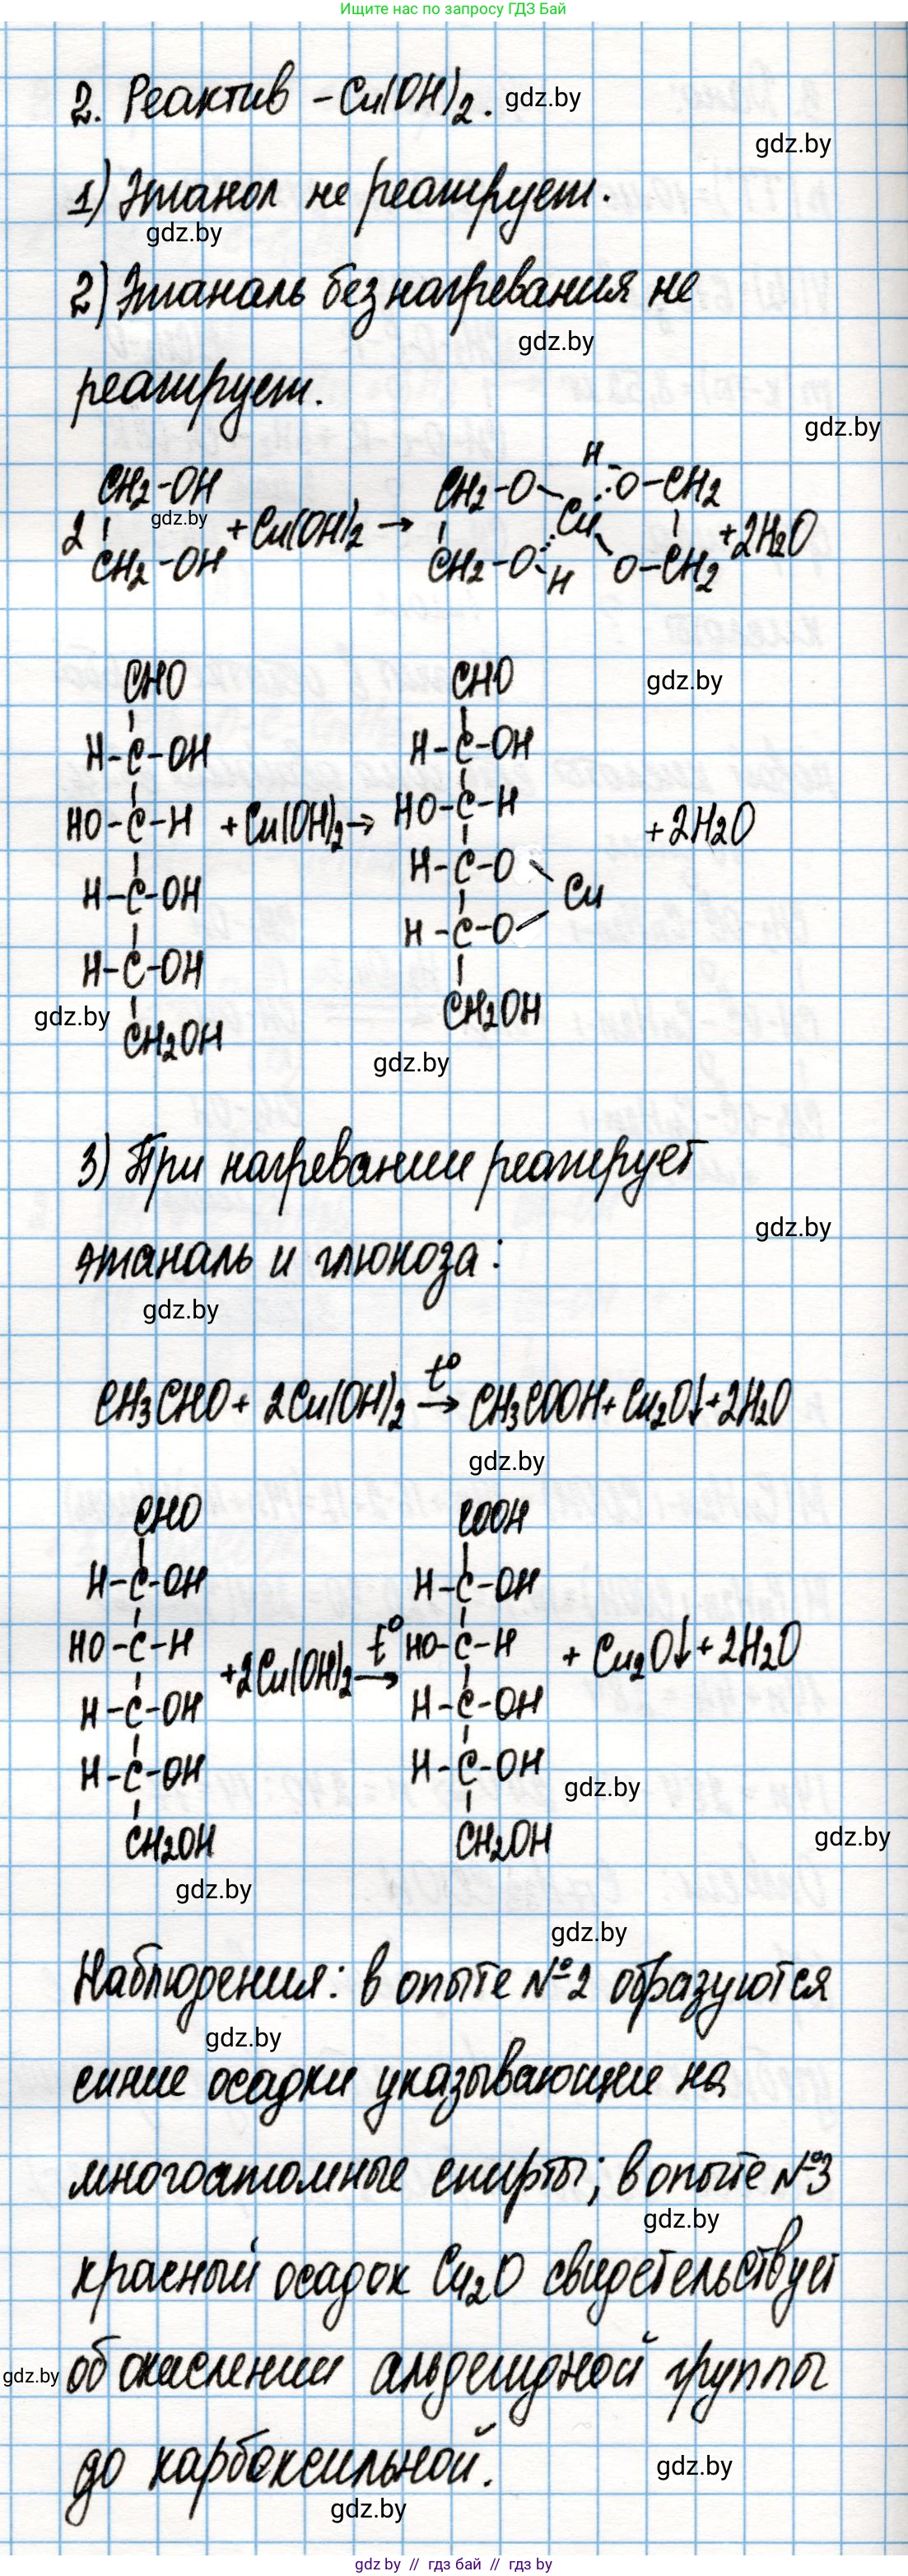 Ищите нас по запросу ГДЗ Бай
2. Реактив – Cu(OH)2. gdz.by
gdz.by
1) Этанол не реагирует.
gdz.by
2) Этаналь без нагревания не
gdz.by
реагирует.
gdz.by
H
CH2-OH CH2-O O-CH2
2 gdz.by +Cu(OH)2 → Cu +2H2O
CH2-OH CH2-O H O-CH2
CHO CHO gdz.by
H-C-OH H-C-OH
HO-C-H +Cu(OH)2→ HO-C-H +2H2O
H-C-OH H-C-O Cu
H-C-OH H-C-O
gdz.by CH2OH CH2OH
gdz.by
3) При нагревании реагирует
gdz.by
этаналь и глюкоза:
gdz.by
CH3CHO + 2Cu(OH)2 t° → CH3COOH+Cu2O↓+2H2O
gdz.by
CHO COOH
H-C-OH H-C-OH
HO-C-H +2Cu(OH)2 t° → HO-C-H + Cu2O↓+2H2O
H-C-OH H-C-OH
H-C-OH H-C-OH
gdz.by
CH2OH CH2OH gdz.by
gdz.by
gdz.by
Наблюдения: в опыте №2 образуются
gdz.by
синие осадки указывающие на
многоатомные спирты; в опыте №3
gdz.by
красный осадок Cu2O свидетельствует
gdz.by об окислении альдегидной группы
до карбоксильной. gdz.by
gdz.by
gdz by // гдз бай // гдз by